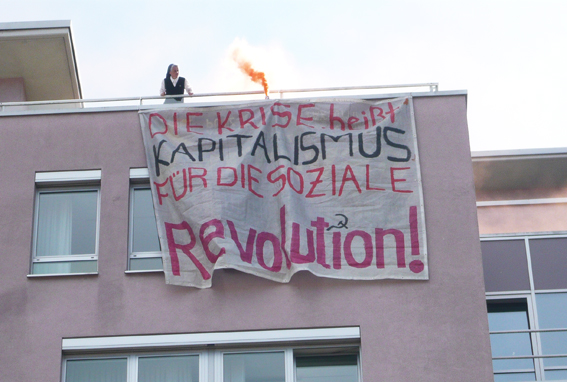 DIE KRISE heißt
KAPITALISMUS
FÜR DIE SOZIALE
Revolution!